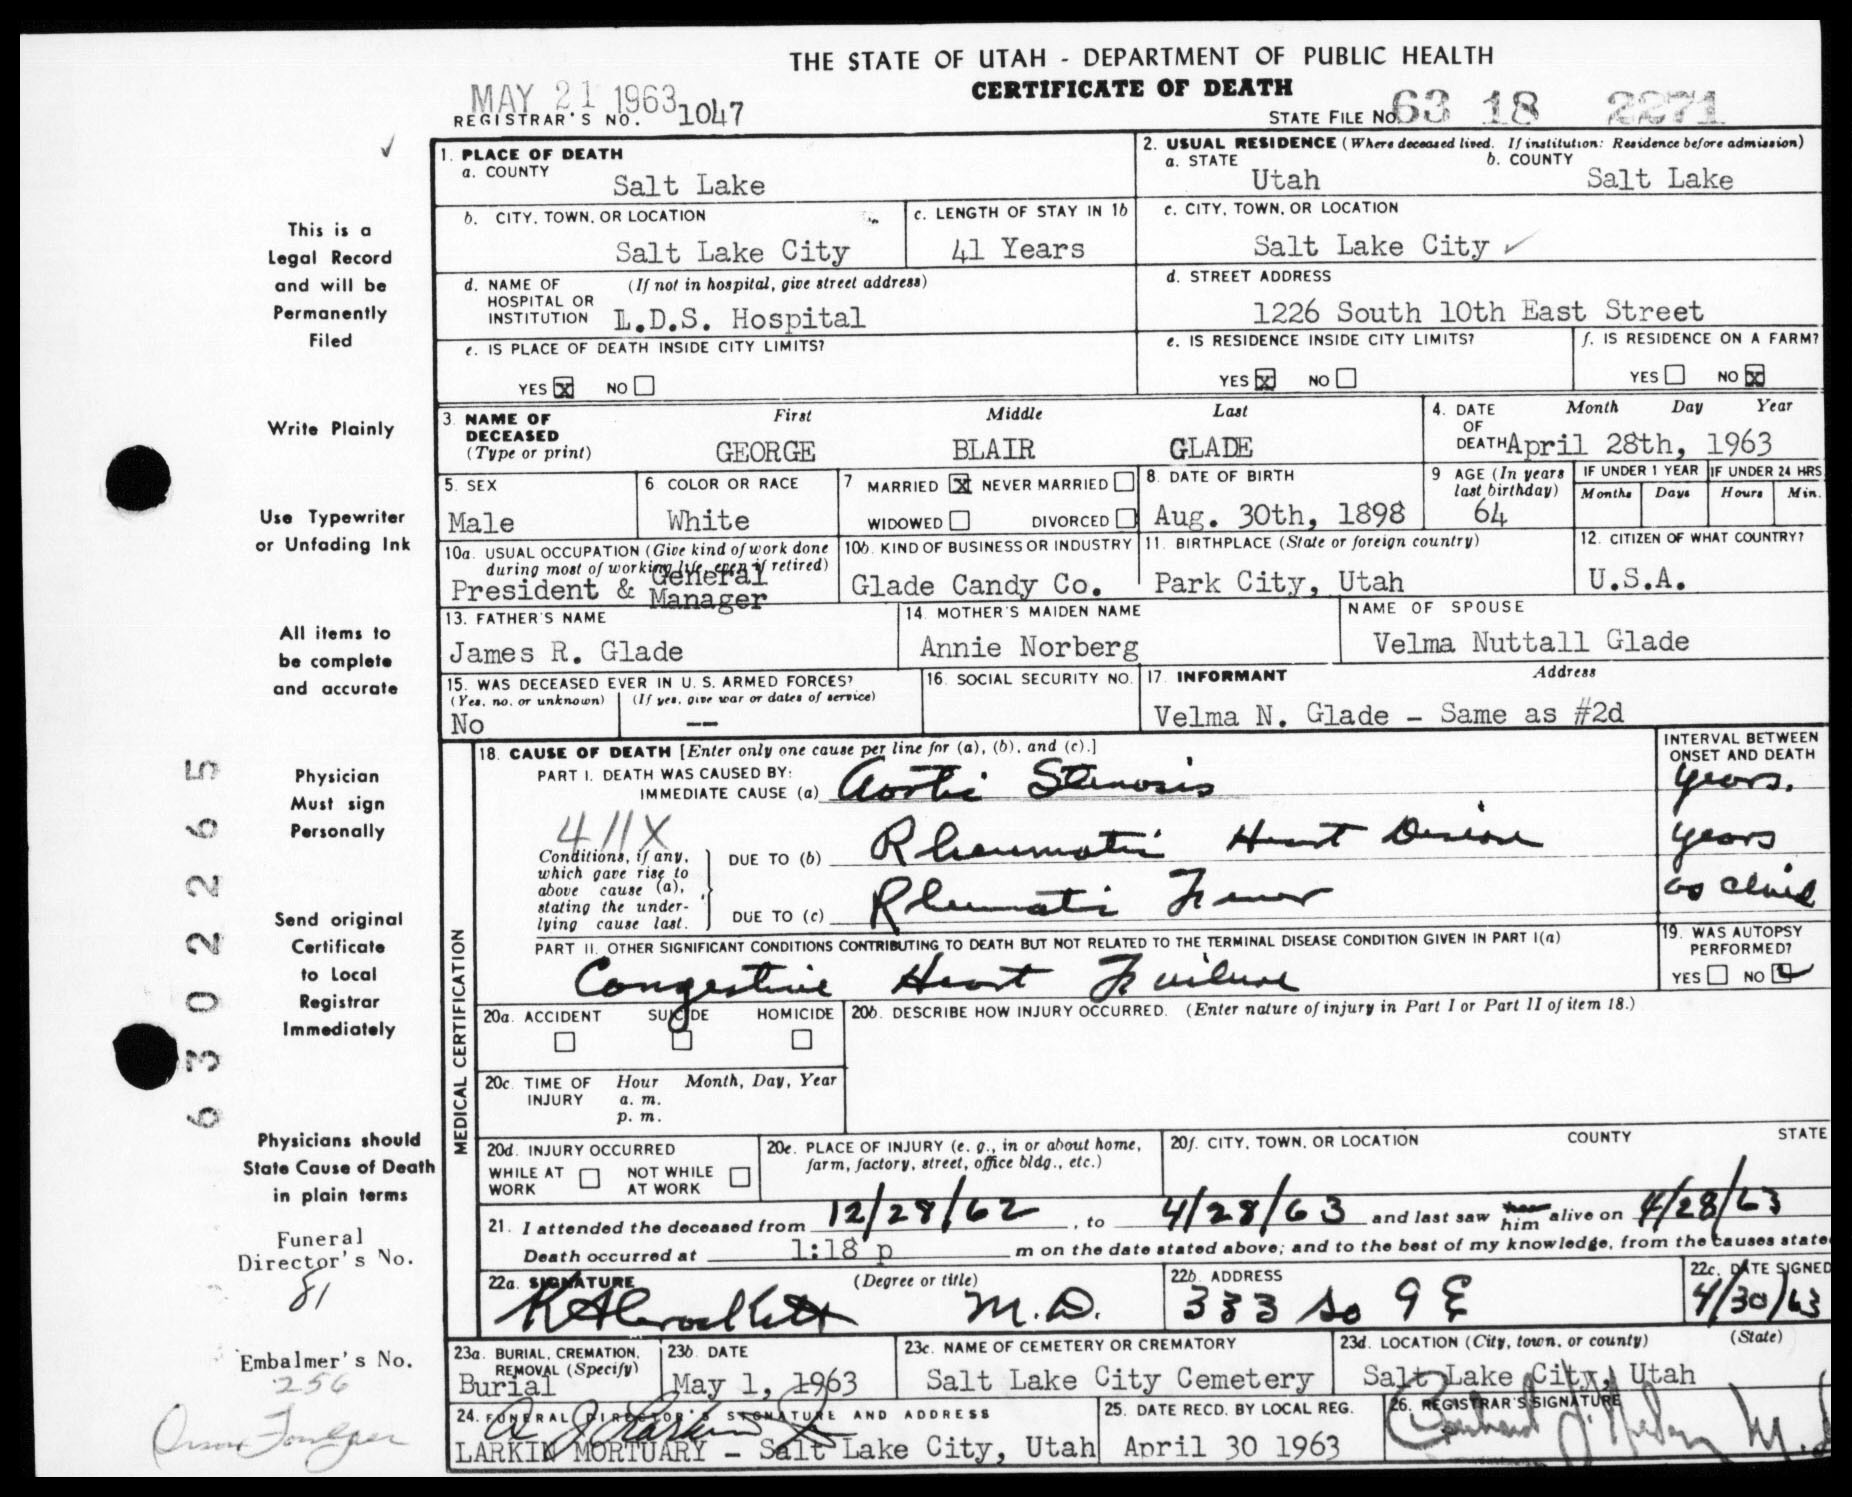 THE STATE OF UTAH - DEPARTMENT OF PUBLIC HEALTH
CERTIFICATE OF DEATH
MAY 21 1963
REGISTRAR'S NO. 1047
STATE FILE NO. 63 18 2271
1. PLACE OF DEATH
a. COUNTY
Salt Lake
2. USUAL RESIDENCE (Where deceased lived. If institution: Residence before admission)
a. STATE b. COUNTY
Utah Salt Lake
b. CITY, TOWN, OR LOCATION
Salt Lake City
c. LENGTH OF STAY IN 1b
41 Years
c. CITY, TOWN, OR LOCATION
Salt Lake City ✓
d. NAME OF HOSPITAL OR INSTITUTION (If not in hospital, give street address)
L.D.S. Hospital
d. STREET ADDRESS
1226 South 10th East Street
e. IS PLACE OF DEATH INSIDE CITY LIMITS?
YES X NO
e. IS RESIDENCE INSIDE CITY LIMITS?
YES X NO
f. IS RESIDENCE ON A FARM?
YES NO X
3. NAME OF DECEASED (Type or print)
First Middle Last
GEORGE BLAIR GLADE
4. DATE OF DEATH Month Day Year
April 28th, 1963
5. SEX
Male
6. COLOR OR RACE
White
7 MARRIED X NEVER MARRIED
WIDOWED DIVORCED
8. DATE OF BIRTH
Aug. 30th, 1898
9 AGE (In years last birthday)
64
IF UNDER 1 YEAR
Months Days
IF UNDER 24 HRS
Hours Min.
10a. USUAL OCCUPATION (Give kind of work done during most of working life, even if retired)
President & General Manager
10b. KIND OF BUSINESS OR INDUSTRY
Glade Candy Co.
11. BIRTHPLACE (State or foreign country)
Park City, Utah
12. CITIZEN OF WHAT COUNTRY?
U.S.A.
13. FATHER'S NAME
James R. Glade
14. MOTHER'S MAIDEN NAME
Annie Norberg
NAME OF SPOUSE
Velma Nuttall Glade
15. WAS DECEASED EVER IN U. S. ARMED FORCES?
(Yes, no, or unknown) (If yes, give war or dates of service)
No --
16. SOCIAL SECURITY NO.
17. INFORMANT Address
Velma N. Glade - Same as #2d
MEDICAL CERTIFICATION
18. CAUSE OF DEATH [Enter only one cause per line for (a), (b), and (c).]
INTERVAL BETWEEN ONSET AND DEATH
PART I. DEATH WAS CAUSED BY:
IMMEDIATE CAUSE (a) Aortic Stenosis years.
411X
Conditions, if any, which gave rise to above cause (a), stating the underlying cause last.
DUE TO (b) Rheumatic Heart Disease years
DUE TO (c) Rheumatic Fever as child
PART II. OTHER SIGNIFICANT CONDITIONS CONTRIBUTING TO DEATH BUT NOT RELATED TO THE TERMINAL DISEASE CONDITION GIVEN IN PART I(a)
Congestive Heart Failure
19. WAS AUTOPSY PERFORMED?
YES NO ✓
20a. ACCIDENT SUICIDE HOMICIDE
20b. DESCRIBE HOW INJURY OCCURRED. (Enter nature of injury in Part I or Part II of item 18.)
20c. TIME OF INJURY Hour Month, Day, Year
a. m.
p. m.
20d. INJURY OCCURRED
WHILE AT WORK NOT WHILE AT WORK
20e. PLACE OF INJURY (e. g., in or about home, farm, factory, street, office bldg., etc.)
20f. CITY, TOWN, OR LOCATION COUNTY STATE
21. I attended the deceased from 12/28/62, to 4/28/63 and last saw her him alive on 4/28/63
Death occurred at 1:18 p m on the date stated above; and to the best of my knowledge, from the causes state
22a. SIGNATURE (Degree or title)
M.D.
22b. ADDRESS
333 So 9 E
22c. DATE SIGNED
4/30/63
23a. BURIAL, CREMATION, REMOVAL (Specify)
Burial
23b. DATE
May 1, 1963
23c. NAME OF CEMETERY OR CREMATORY
Salt Lake City Cemetery
23d. LOCATION (City, town, or county) (State)
Salt Lake City, Utah
24. FUNERAL DIRECTOR'S SIGNATURE AND ADDRESS
LARKIN MORTUARY - Salt Lake City, Utah
25. DATE RECD. BY LOCAL REG.
April 30 1963
26. REGISTRAR'S SIGNATURE
This is a
Legal Record
and will be
Permanently
Filed
Write Plainly
Use Typewriter
or Unfading Ink
All items to
be complete
and accurate
Physician
Must sign
Personally
Send original
Certificate
to Local
Registrar
Immediately
Physicians should
State Cause of Death
in plain terms
Funeral
Director's No.
81
Embalmer's No.
256
63022265